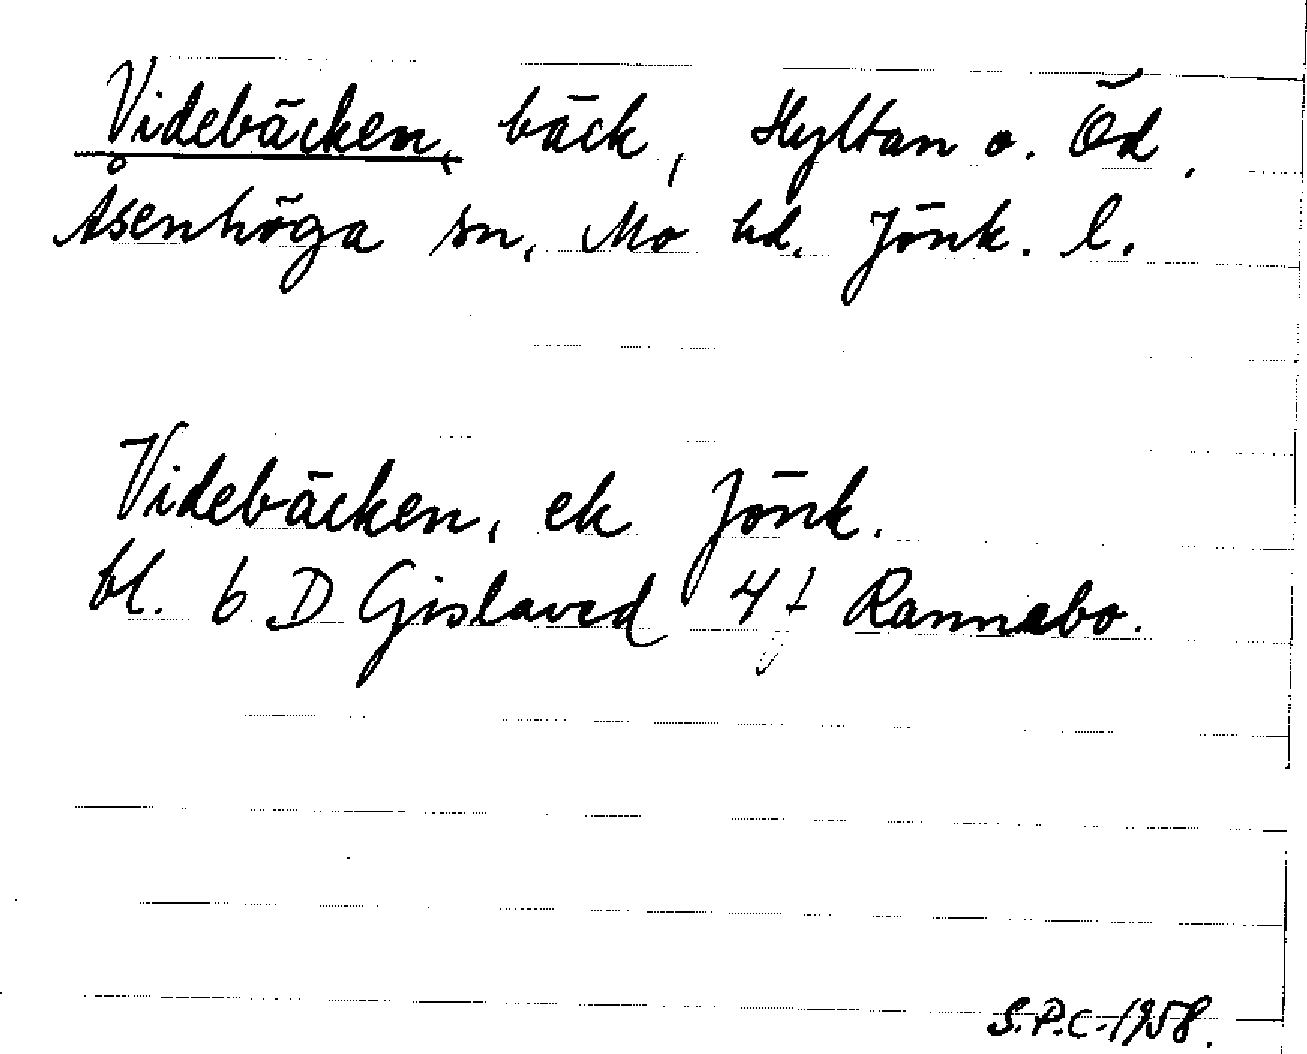 Videbäcken, bäck, Hyltan o. Öd.
Åsenhöga sn, Mo hd. Jönk. l.
Videbäcken, ek Jönk.
bl. 6 D Gislaved 4 f Rannebo.
S.P.C. 1958.